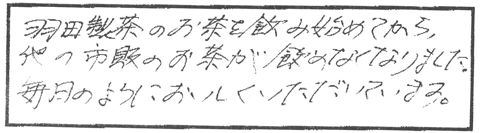 羽田製茶のお茶を飲み始めてから、
他の市販のお茶が飲めなくなりました。
毎日のようにおいしくいただいています。